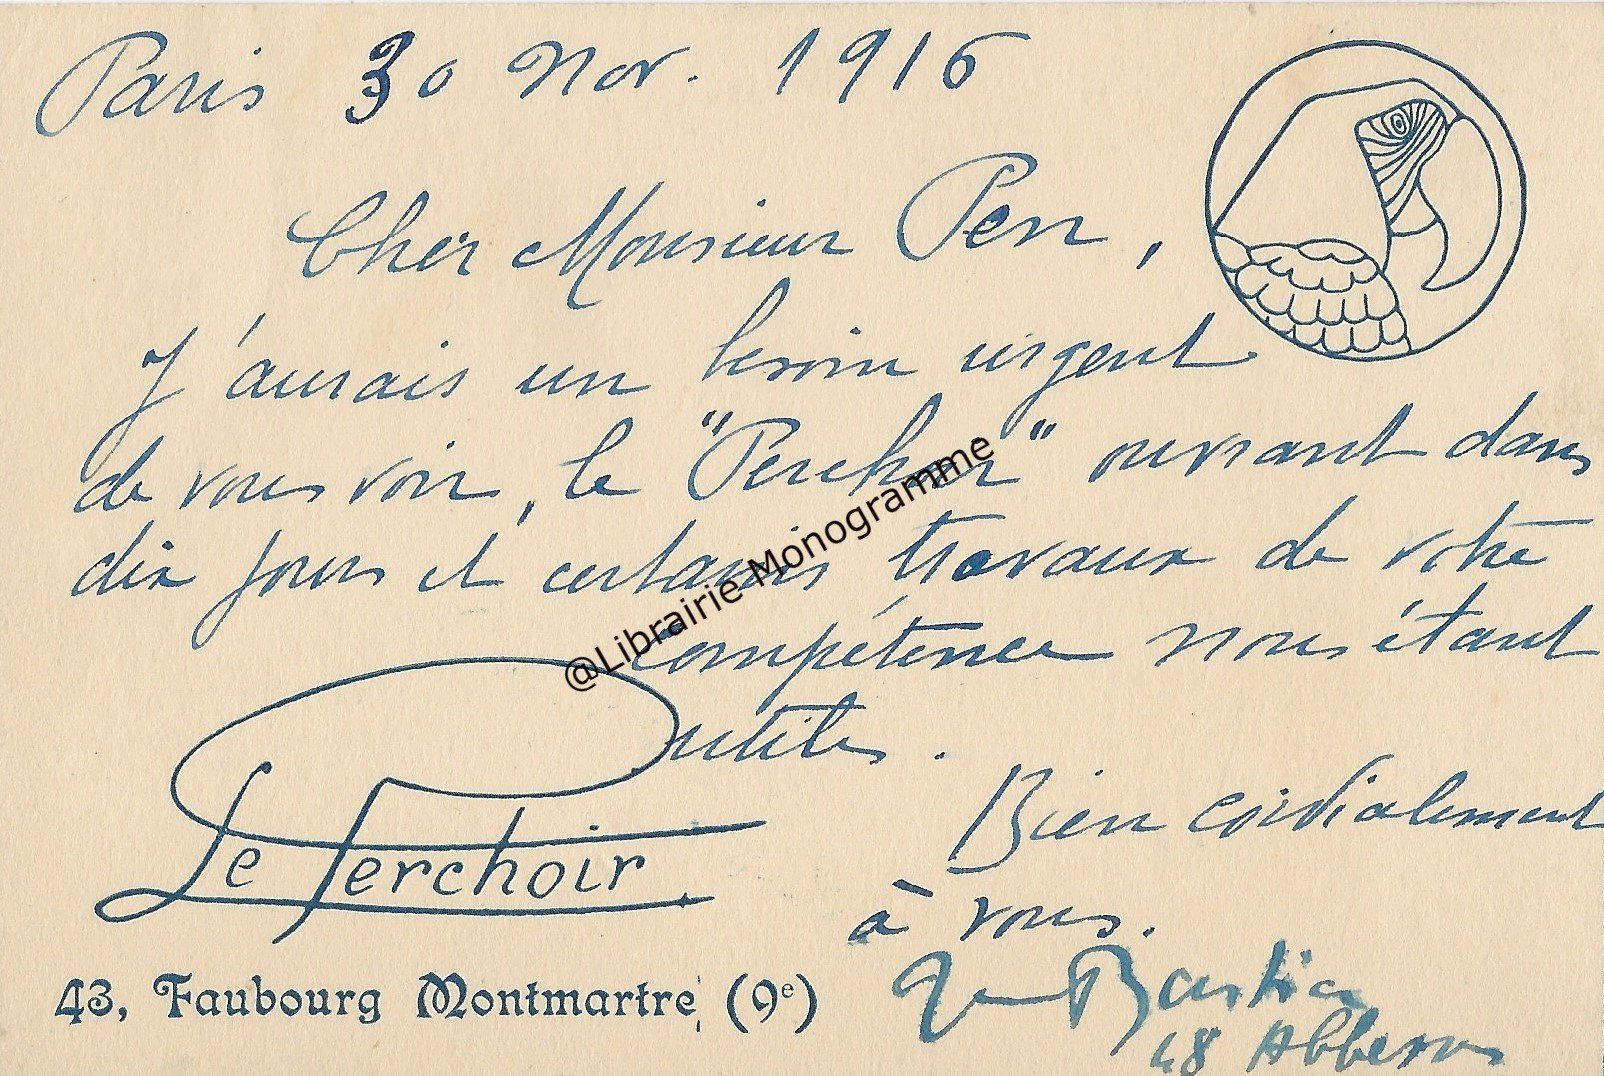 Paris 30 Nov. 1916
Cher Monsieur Pen,
J'aurais un besoin urgent
de vous voir, le "Perchoir" ouvrant dans
dix jours et certains travaux de votre
compétence nous étant
utiles.
Bien cordialement
à vous.
Jean Bastia
48 Abbesses
Le Perchoir
43, Faubourg Montmartre, (9e)
@Librairie-Monogramme